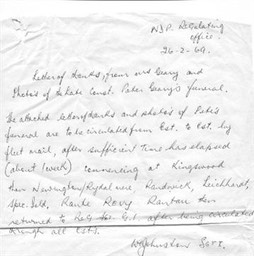 Office.
26-2-69.
Letter of thanks, from Mrs Geary and
Photos of Const. Peter Geary's funeral.
The attached letter of thanks and photos of Peter's
funeral are to be circulated from Est. to Est. by
fleet mail, after sufficient time has elapsed
(about 1 week) commencing at Kingswood
then Newington/Rydalmere, Randwick, Leichhardt,
then
returned to after being circulated
through all Est's.
Sgt.